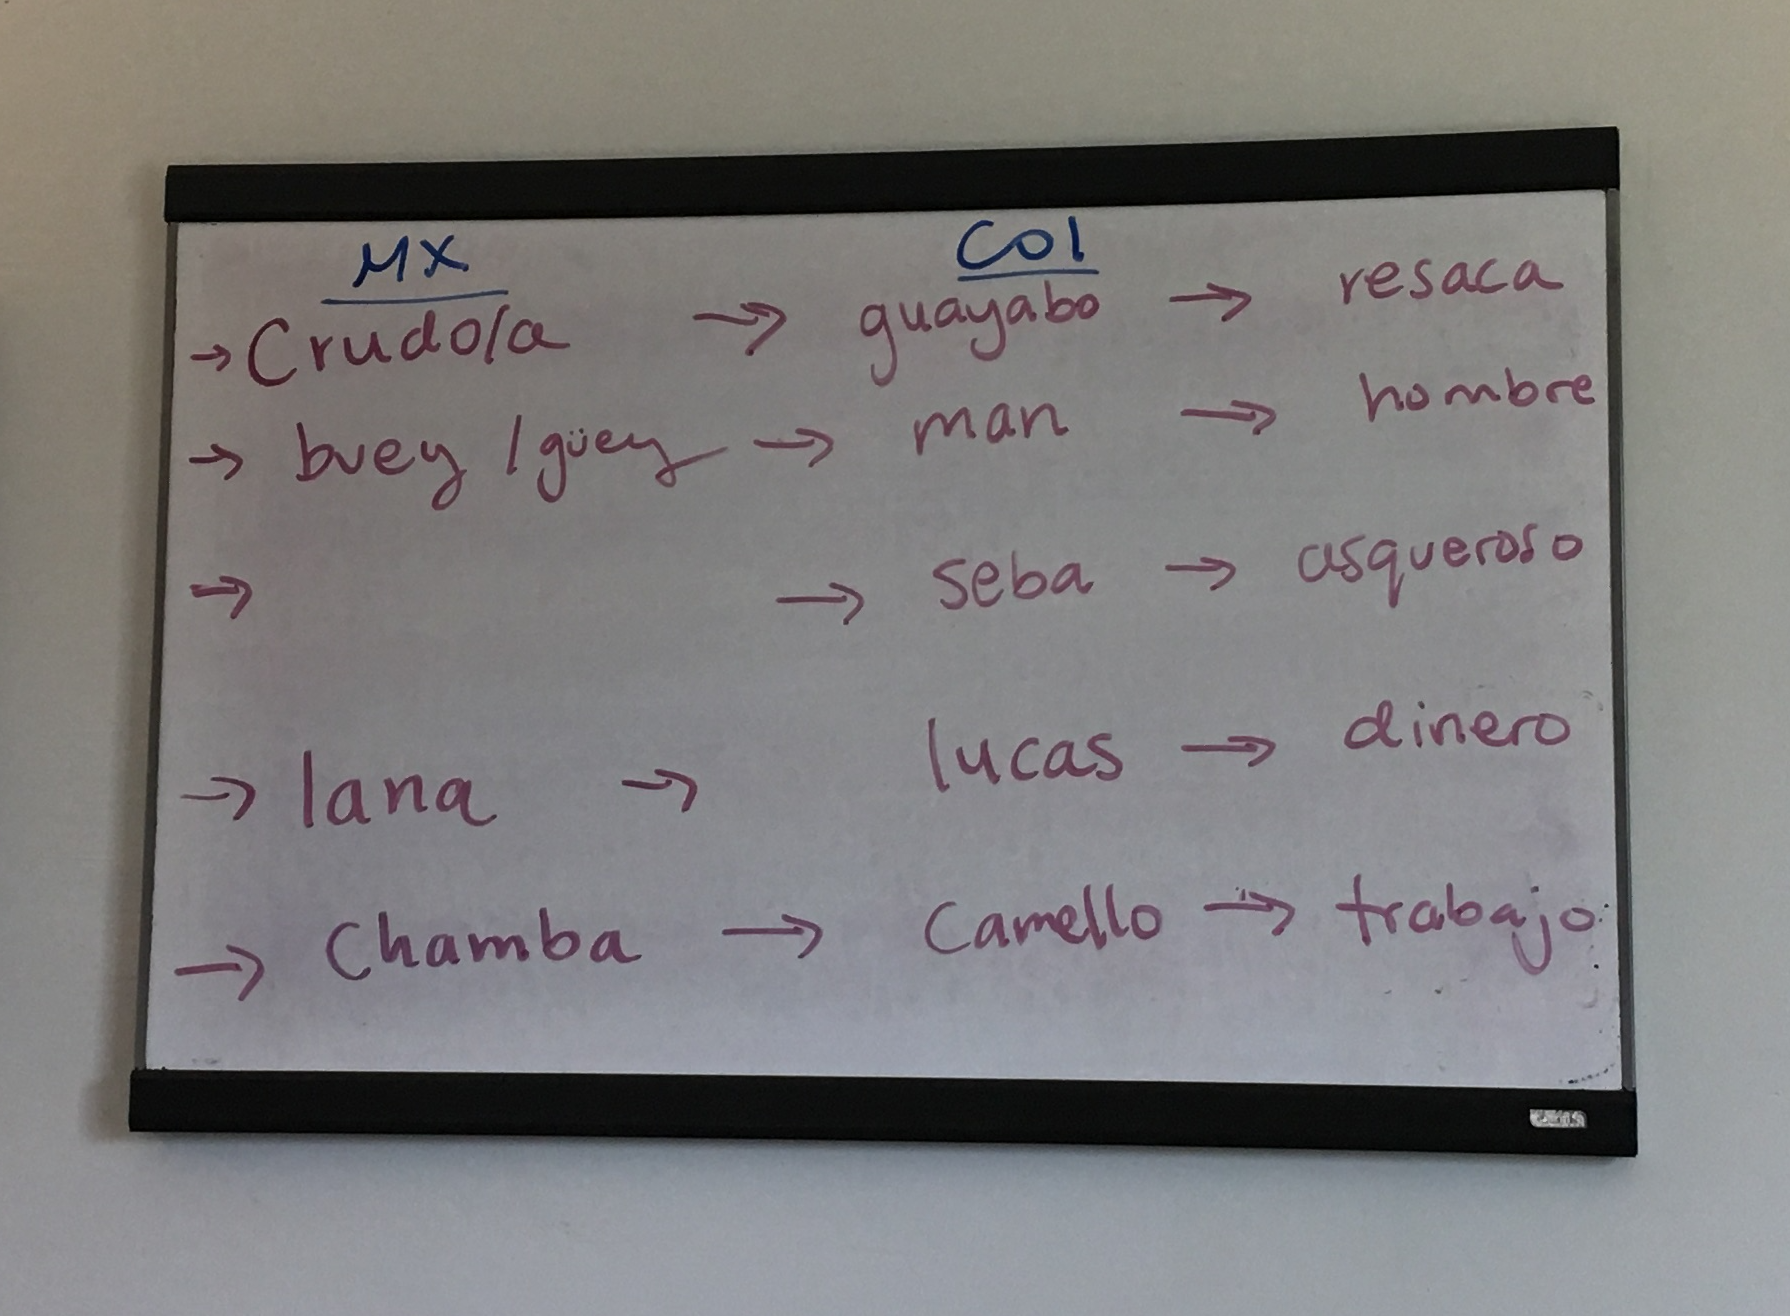 MX COl
→ Crudo/a → guayabo → resaca
→ buey / güey → man → hombre
→ → seba → asqueroso
→ lana → lucas → dinero
→ Chamba → Camello → trabajo